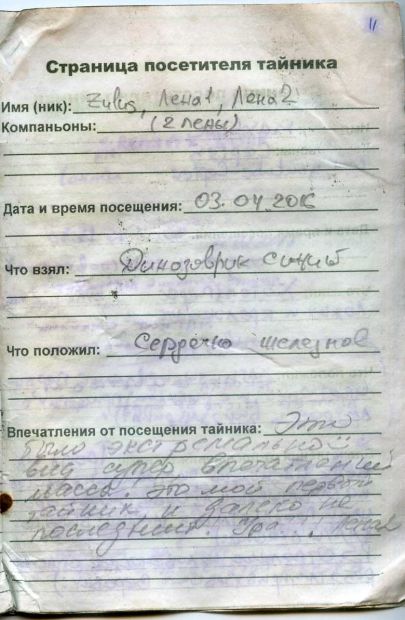 11
Страница посетителя тайника
Имя (ник): Zulus, Лена1, Лена2
Компаньоны: (2 лены)
Дата и время посещения: 03.04.2016
Что взял: Динозаврик синий
Что положил: Сердечко железное
Впечатления от посещения тайника: Это
было экстремально
вид супер впечатлений
масса. это мой первый
тайник и далеко не
последний. Ура!!!